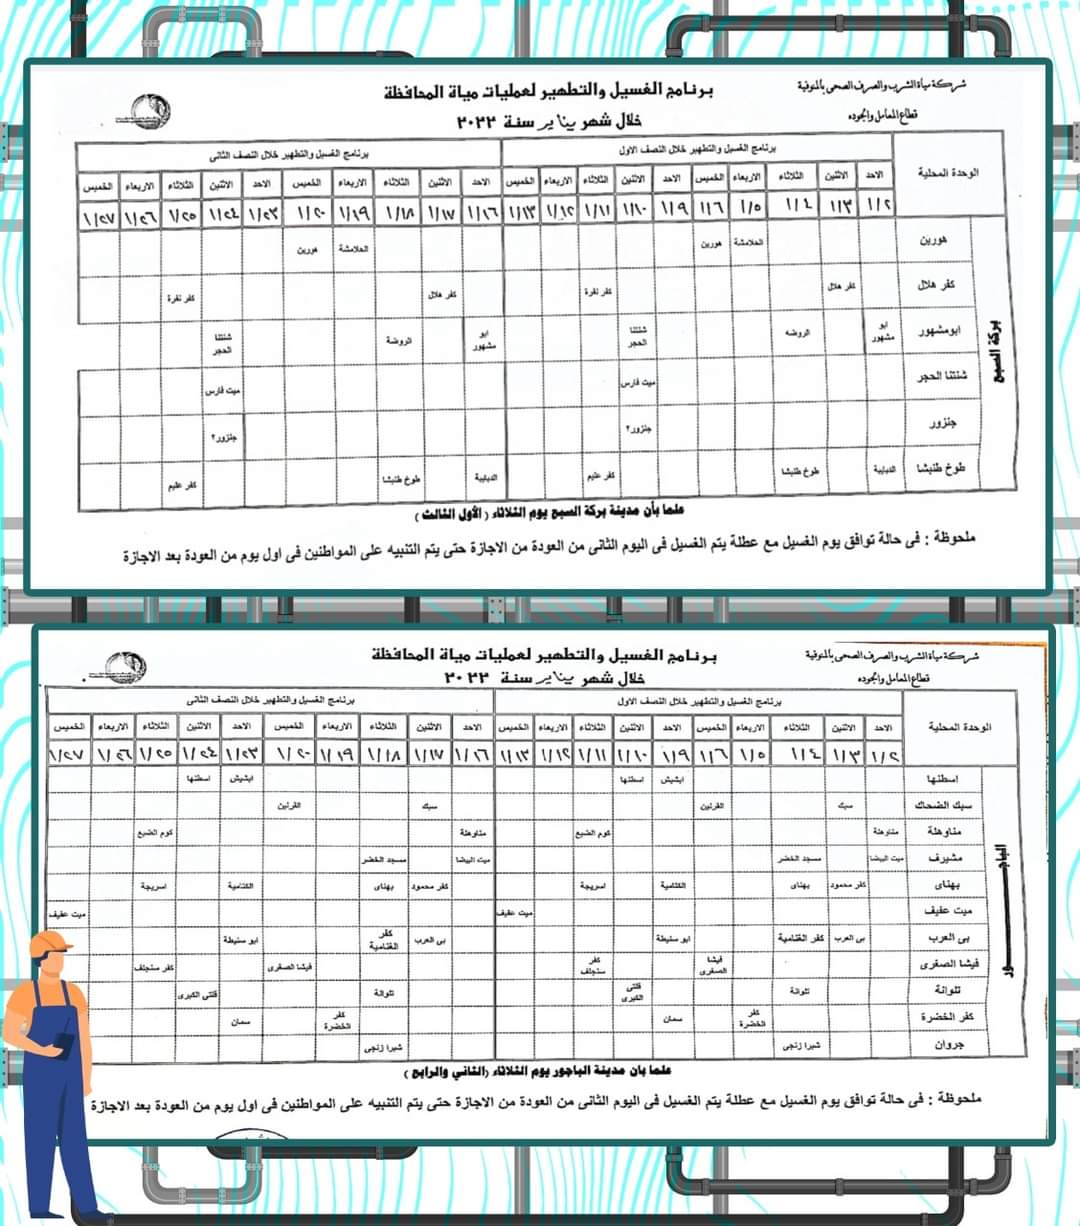 شركة مياة الشرب والصرف الصحى بالمنوفية
قطاع المعامل والجوده
برنامج الغسيل والتطهير لعمليات مياة المحافظة
خلال شهر يناير سنة ٢٠٢٢
الوحدة المحلية
برنامج الغسيل والتطهير خلال النصف الاول
برنامج الغسيل والتطهير خلال النصف الثانى
الاحد الاثنين الثلاثاء الاربعاء الخميس الاحد الاثنين الثلاثاء الاربعاء الخميس الاحد الاثنين الثلاثاء الاربعاء الخميس الاحد الاثنين الثلاثاء الاربعاء الخميس
١/٢ ١/٣ ١/٤ ١/٥ ١/٦ ١/٩ ١/١٠ ١/١١ ١/١٢ ١/١٣ ١/١٦ ١/١٧ ١/١٨ ١/١٩ ١/٢٠ ١/٢٣ ١/٢٤ ١/٢٥ ١/٢٦ ١/٢٧
بركة السبع
هورين الحلامشة هورين الحلامشة هورين
كفر هلال كفر هلال كفر نفرة كفر هلال كفر نفرة
ابومشهور ابو مشهور الروضه شنتنا الحجر ابو مشهور الروضة شنتنا الحجر
شنتنا الحجر ميت فارس ميت فارس
جنزور جنزور٢ جنزور٢
طوخ طنبشا الدبابية طوخ طنبشا كفر عليم الدبابية طوخ طنبشا كفر عليم
علما بأن مدينة بركة السبع يوم الثلاثاء ( الأول الثالث )
ملحوظة : فى حالة توافق يوم الغسيل مع عطلة يتم الغسيل فى اليوم الثانى من العودة من الاجازة حتى يتم التنبيه على المواطنين فى اول يوم من العودة بعد الاجازة
شركة مياة الشرب والصرف الصحى بالمنوفية
قطاع المعامل والجوده
برنامج الغسيل والتطهير لعمليات مياة المحافظة
خلال شهر يناير سنة ٢٠٢٢
الوحدة المحلية
برنامج الغسيل والتطهير خلال النصف الاول
برنامج الغسيل والتطهير خلال النصف الثانى
الاحد الاثنين الثلاثاء الاربعاء الخميس الاحد الاثنين الثلاثاء الاربعاء الخميس الاحد الاثنين الثلاثاء الاربعاء الخميس الاحد الاثنين الثلاثاء الاربعاء الخميس
١/٢ ١/٣ ١/٤ ١/٥ ١/٦ ١/٩ ١/١٠ ١/١١ ١/١٢ ١/١٣ ١/١٦ ١/١٧ ١/١٨ ١/١٩ ١/٢٠ ١/٢٣ ١/٢٤ ١/٢٥ ١/٢٦ ١/٢٧
الباجــــور
اسطنها ابشيش اسطنها ابشيش اسطنها
سبك الضحاك سبك القرنين سبك القرنين
مناوهلة مناوهلة كوم الضبع مناوهلة كوم الضبع
مشيرف ميت البيضا مسجد الخضر ميت البيضا مسجد الخضر
بهناى كفر محمود بهناى الكتامية اسريجة كفر محمود بهناى الكتامية اسريجة
ميت عفيف ميت عفيف ميت عفيف
بى العرب بى العرب كفر الغنامية ابو سنيطة بى العرب كفر الغنامية ابو سنيطة
فيشا الصغرى فيشا الصغرى كفر سنجلف فيشا الصغرى كفر سنجلف
تلوانة تلوانة قلتى الكبرى تلوانة قلتى الكبرى
كفر الخضرة كفر الخضرة سمان كفر الخضرة سمان
جروان شبرا زنجى شبرا زنجى
علما بان مدينة الباجور يوم الثلاثاء (الثاني والرابع )
ملحوظة : فى حالة توافق يوم الغسيل مع عطلة يتم الغسيل فى اليوم الثانى من العودة من الاجازة حتى يتم التنبيه على المواطنين فى اول يوم من العودة بعد الاجازة